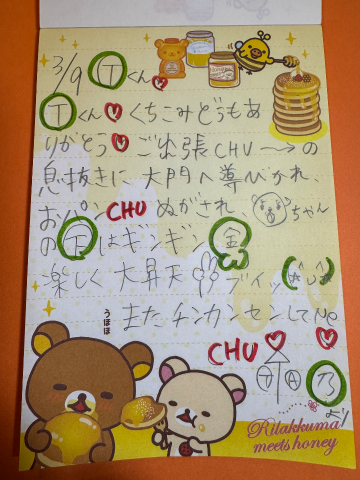 3/9 Ⓣくん
Ⓣくん♡くちこみどうもあ
りがとう♡ご出張CHU〜→の
息抜きに大門へ導びかれ、
おパンCHUぬがされ、ちゃん
のⒻはギンギン㊎
楽しく大昇天 ブイッ
うほほ
またチンカンセンしてNe
CHU♡
Ⓣ Ⓐ 乃
より
Rilakkuma
meets honey